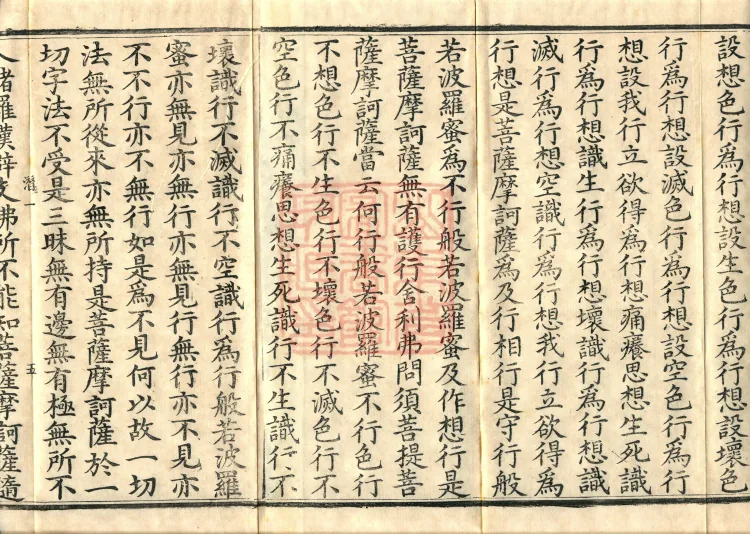 設想色行爲行想設生色行爲行想設壞色
行爲行想設滅色行爲行想設空色行爲行
想設我行立欲得爲行想痛癢思想生死識
行爲行想識生行爲行想壞識行爲行想識
滅行爲行想空識行爲行想我行立欲得爲
行想是菩薩摩訶薩爲及行相行是守行般
若波羅蜜爲不行般若波羅蜜及作想行是
菩薩摩訶薩無有護行舍利弗問須菩提菩
薩摩訶薩當云何行般若波羅蜜不行色行
不想色行不生色行不壞色行不滅色行不
空色行不痛癢思想生死識行不生識行不
壞識行不滅識行不空識行爲行般若波羅
蜜亦無見亦無行亦無見行無行亦不見亦
不不行亦不無行如是爲不見何以故一切
法無所從來亦無所持是菩薩摩訶薩於一
切字法不受是三昧無有邊無有極無所不
五
入諸羅漢辟支佛所不能知菩薩摩訶薩隨